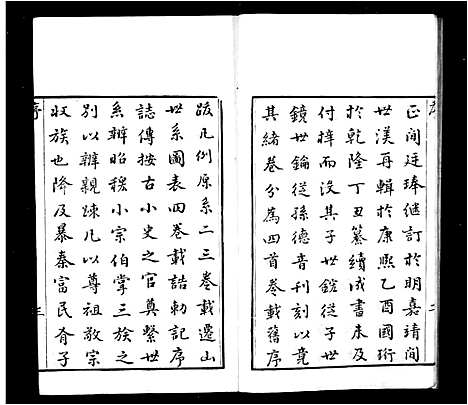 正間廷琫继訂於明嘉靖間
世渼再輯於康熙乙酉國珩
於乾隆丁丑纂續成書未及
付梓而没其子世錠從子世
鏡世錀從孫德音刊刻以竟
其緒卷分為四首卷載舊序
跋凡例原系二三卷載遷山
世系圖表四卷載誥勅記序
誌傳按古小史之官奠繫世
糸辨昭穆小宗伯掌三族之
别以辨親疎凡以尊祖敬宗
收族也降及暴秦富民有子
序
二
三